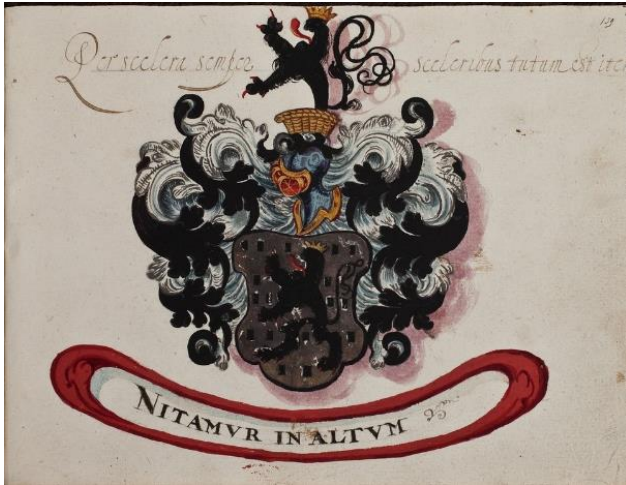 Per scelera semper sceleribus tutum est ite
NITAMVR IN ALTVM